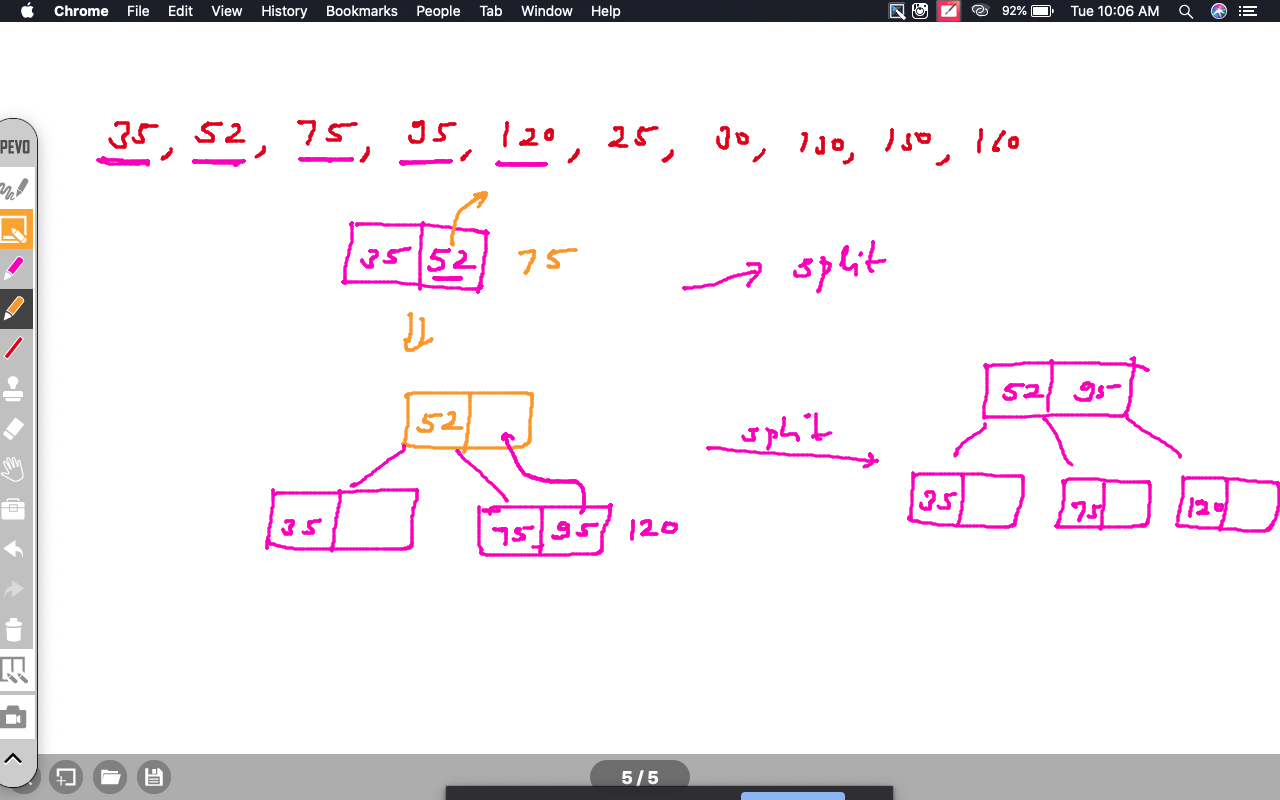 Chrome File Edit View History Bookmarks People Tab Window Help 92% Tue 10:06 AM
PEVO
35, 52, 75, 95, 120, 25, 30, 130, 150, 160
35 52 75
split
52
split
52 95
35
75 95 120
35
75
120
5 / 5